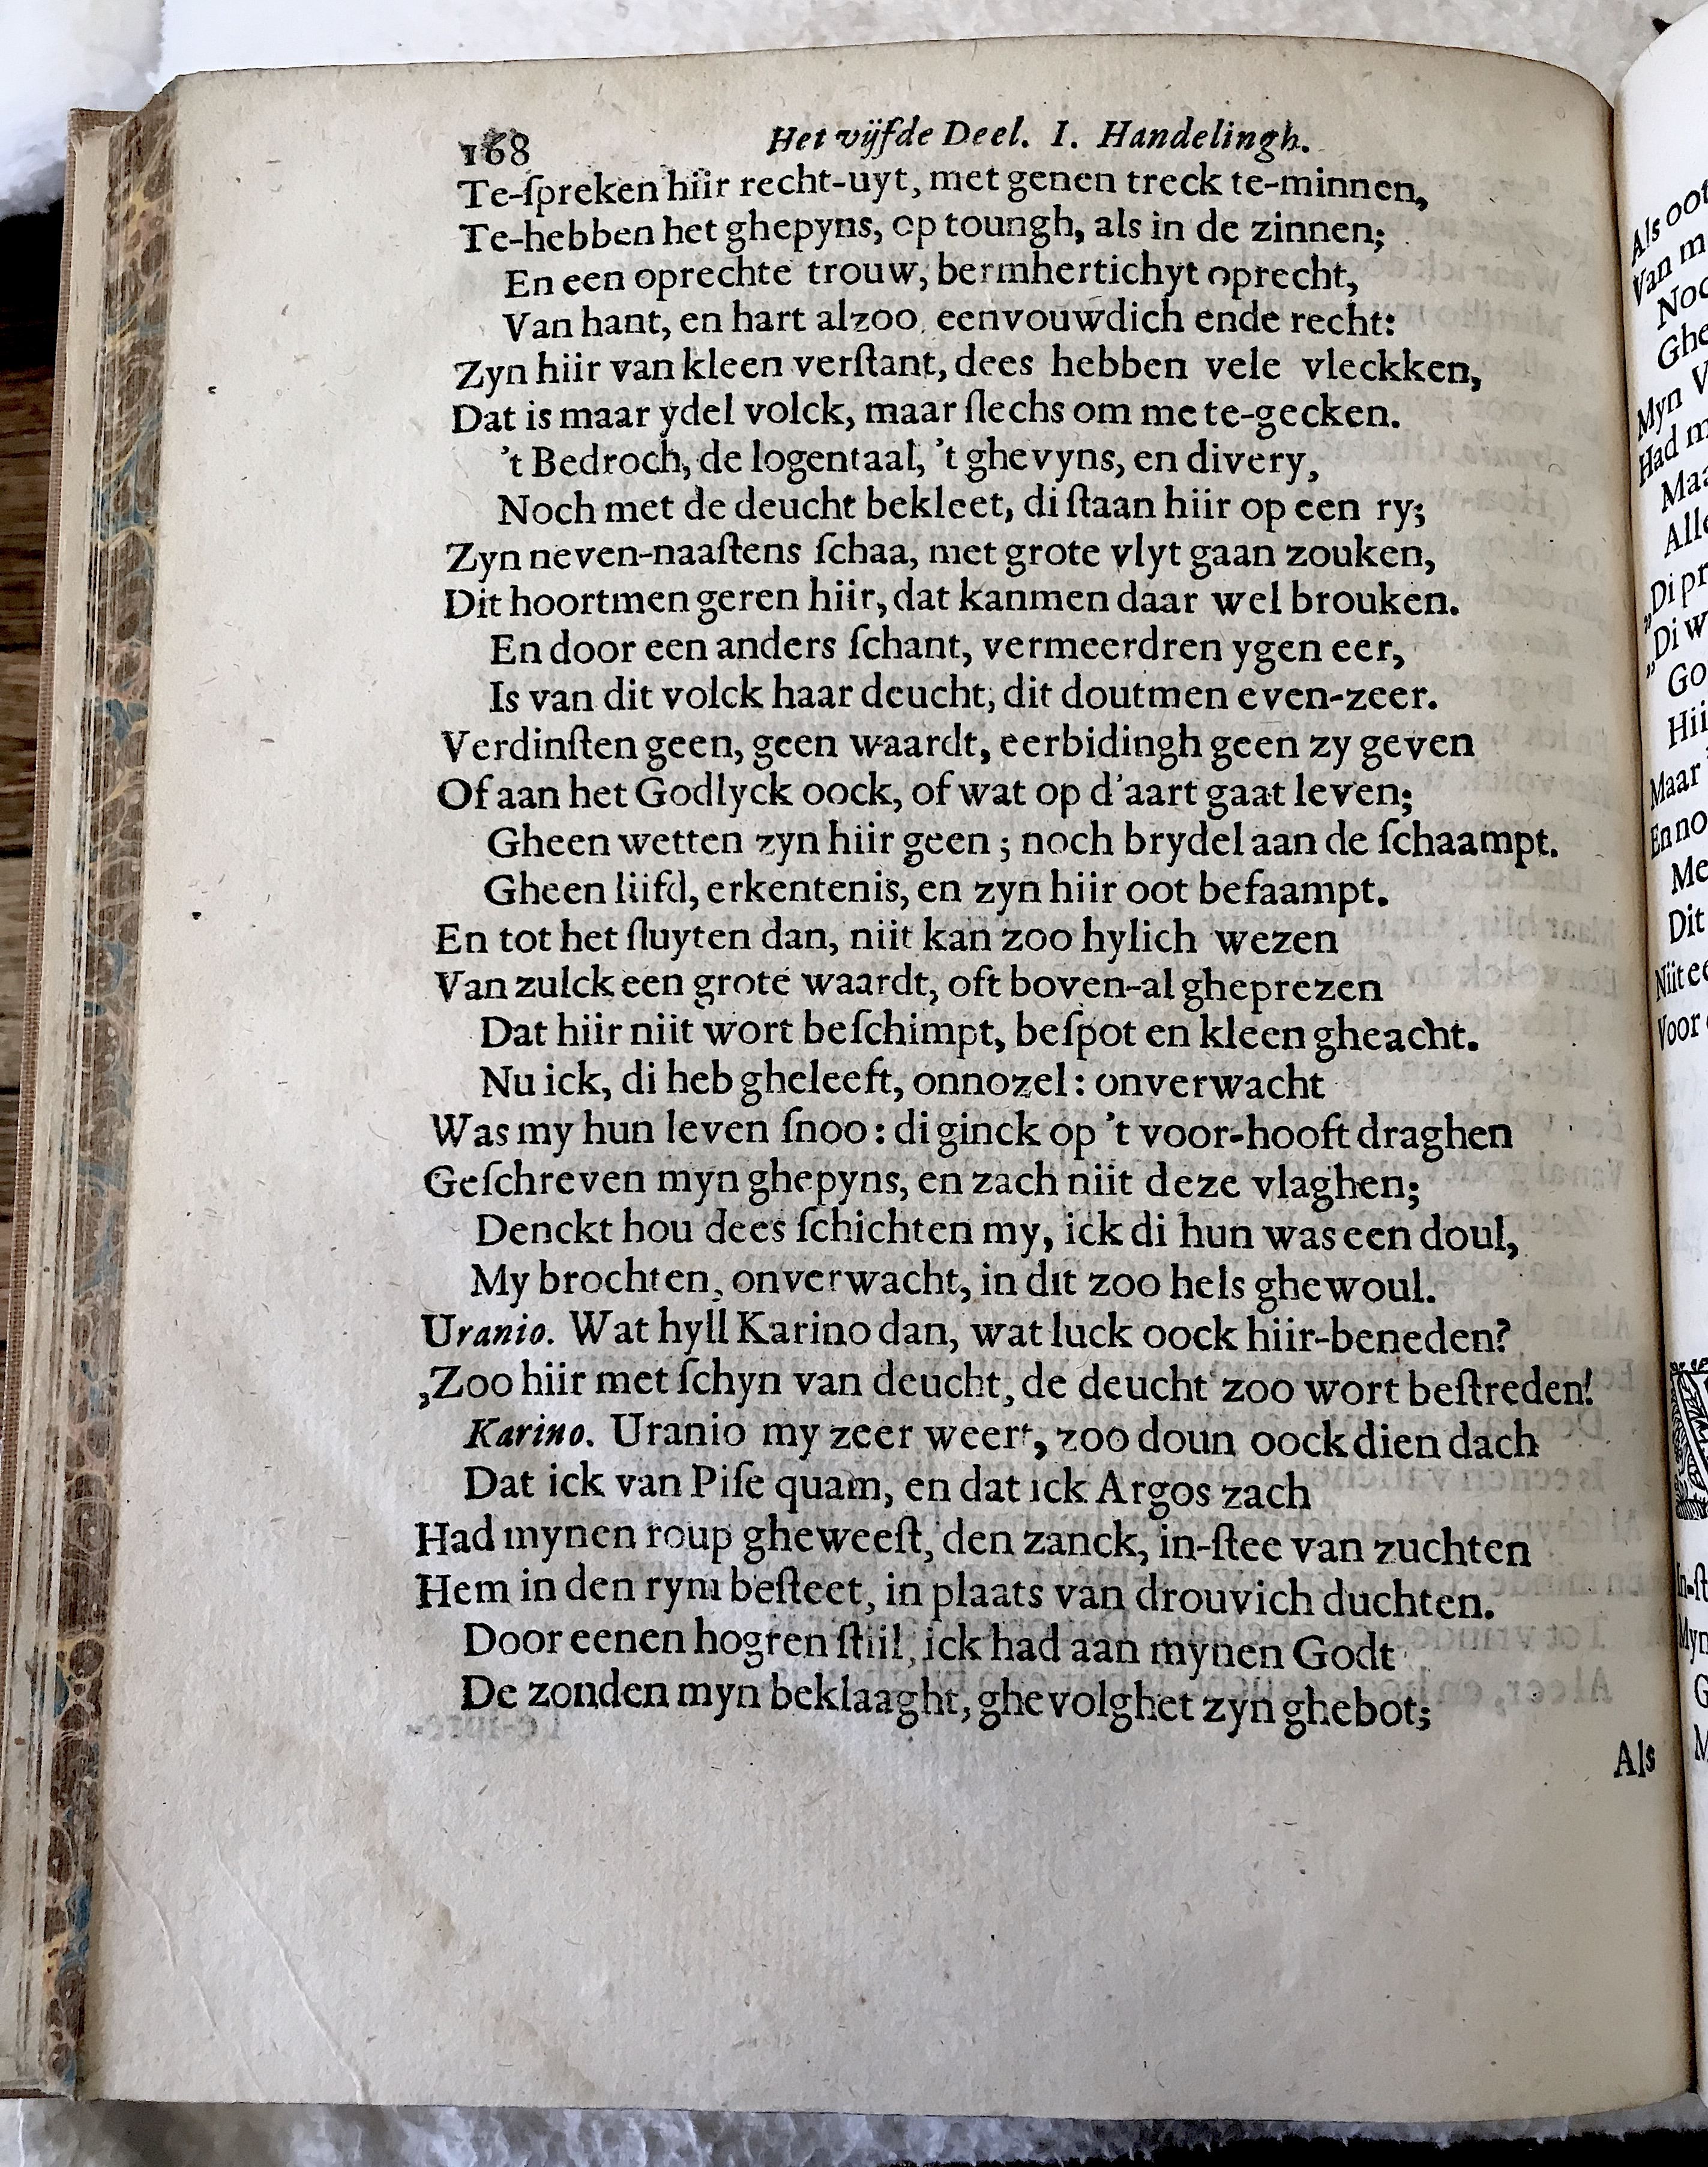 168 Het vijfde Deel. I. Handelingh.
Te-ſpreken hiir recht-uyt, met genen treck te-minnen,
Te-hebben het ghepyns, op toungh, als in de zinnen;
En een oprechte trouw, bermhertichyt oprecht,
Van hant, en hart alzoo eenvouwdich ende recht:
Zyn hiir van kleen verſtant, dees hebben vele vleckken,
Dat is maar ydel volck, maar ſlechs om me te-gecken.
't Bedroch, de logentaal, 't ghevyns, en divery,
Noch met de deucht bekleet, di ſtaan hiir op een ry;
Zyn neven-naaſtens ſchaa, met grote vlyt gaan zouken,
Dit hoortmen geren hiir, dat kanmen daar wel brouken.
En door een anders ſchant, vermeerdren ygen eer,
Is van dit volck haar deucht, dit doutmen even-zeer.
Verdinſten geen, geen waardt, eerbidingh geen zy geven
Of aan het Godlyck oock, of wat op d'aart gaat leven;
Gheen wetten zyn hiir geen; noch brydel aan de ſchaampt.
Gheen liifd, erkentenis, en zyn hiir oot befaampt.
En tot het ſluyten dan, niit kan zoo hylich wezen
Van zulck een grote waardt, oft boven-al gheprezen
Dat hiir niit wort beſchimpt, beſpot en kleen gheacht.
Nu ick, di heb gheleeft, onnozel: onverwacht
Was my hun leven ſnoo: di ginck op 't voor-hooft draghen
Geſchreven myn ghepyns, en zach niit deze vlaghen;
Denckt hou dees ſchichten my, ick di hun was een doul,
My brochten, onverwacht, in dit zoo hels ghewoul.
Uranio. Wat hyll Karino dan, wat luck oock hiir-beneden?
,Zoo hiir met ſchyn van deucht, de deucht zoo wort beſtreden!
Karino. Uranio my zeer weert, zoo doun oock dien dach
Dat ick van Piſe quam, en dat ick Argos zach
Had mynen roup gheweeſt, den zanck, in-ſtee van zuchten
Hem in den rym beſteet, in plaats van drouvich duchten.
Door eenen hogren ſtiil, ick had aan mynen Godt
De zonden myn beklaaght, ghevolghet zyn ghebot;
Als